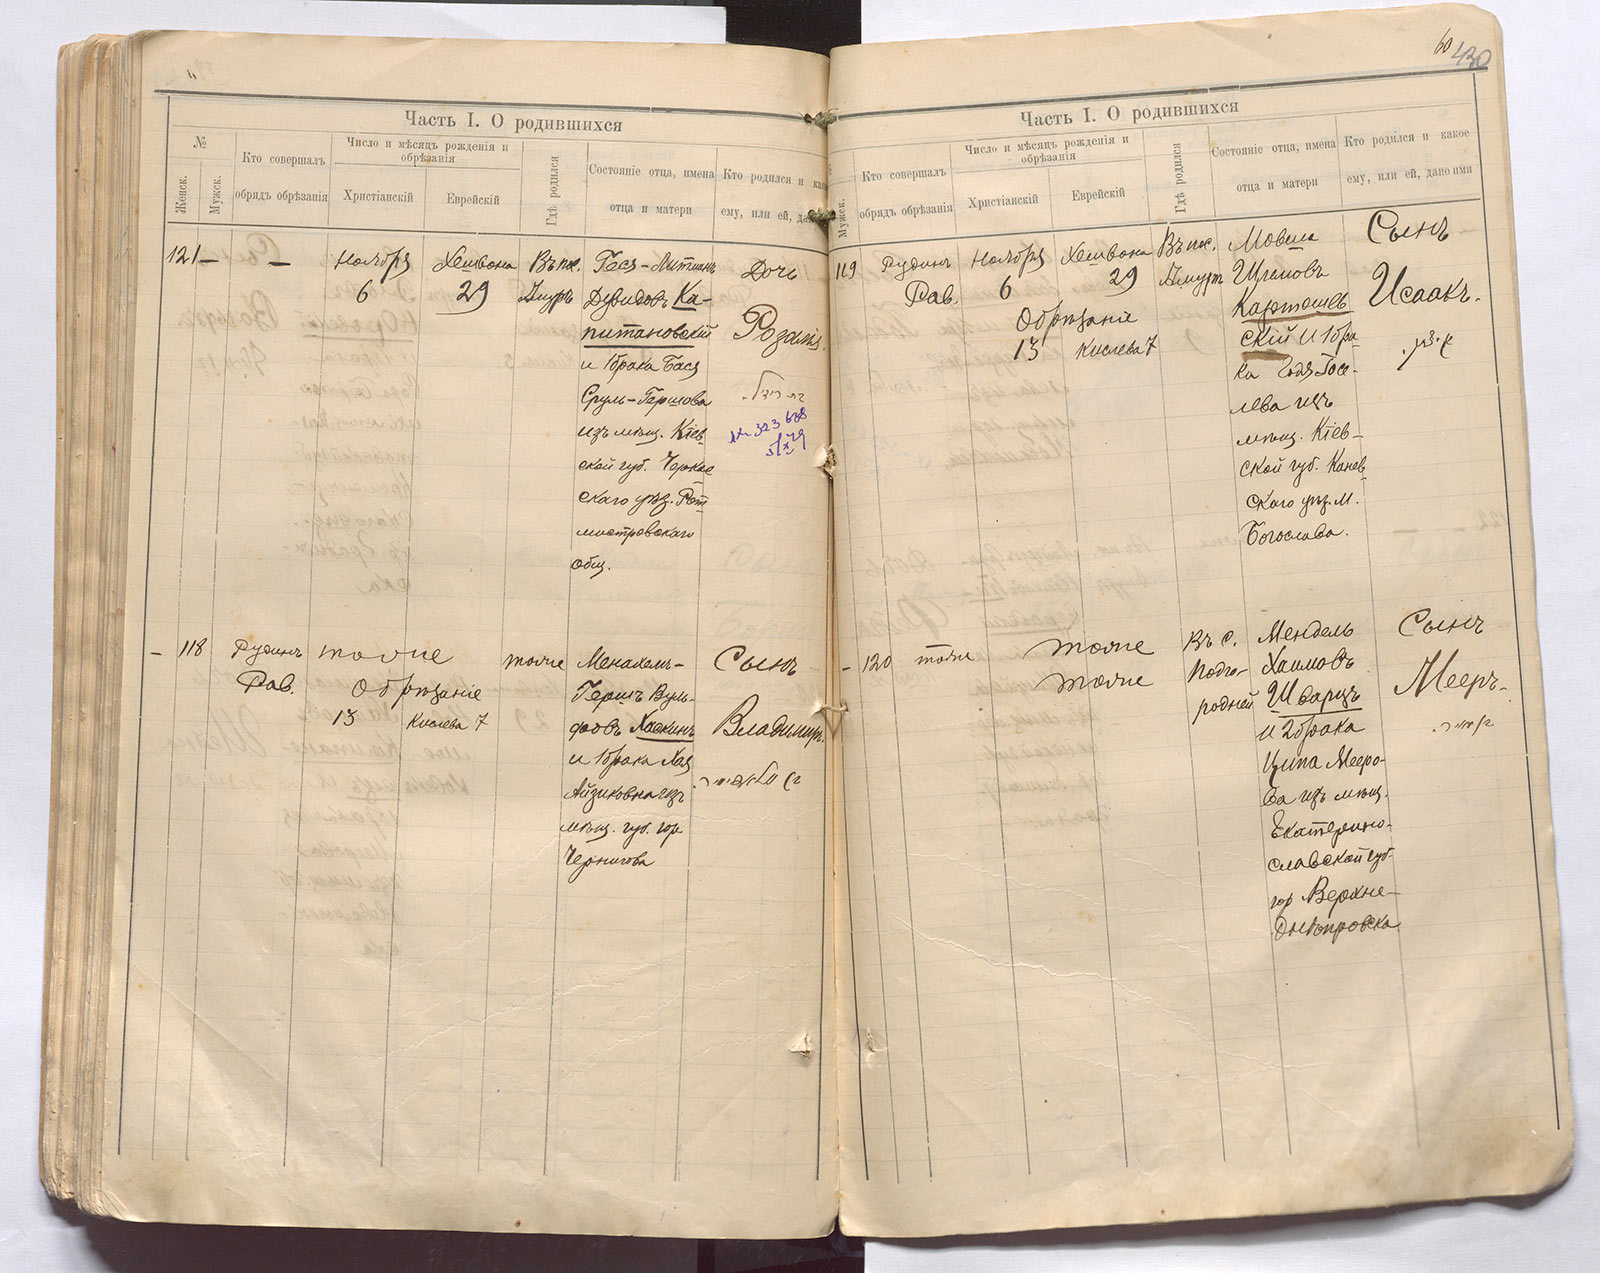 60 430
Часть I. О родившихся
№
Женск.
Мужск.
Кто совершалъ
обрядъ обрѣзанія
Число и мѣсяцъ рожденія и
обрѣзанія
Христіанскій
Еврейскій
Гдѣ родился
Состояніе отца, имена
отца и матери
Кто родился и
ему, или ей,
121 — —
Ноября
6
Хешвона
29
Въ пос.
Амуръ
Давидовъ Ка-
питановскій
и 1 брака Бася
Сруль-Гершова
изъ мѣщ. Кіев-
ской губ. Черкас
скаго уѣз. Рот
мистровскаго
общ.
Дочь
Розалія.
— 118
Рудинъ
Рав.
тоже
Обрѣзаніе
13 Кислева 7
тоже
Менахемъ-
Гершъ Вуль-
фовъ Хаскинъ
и 1 брака Хая
Айзиковна изъ
мѣщ. губ. гор.
Чернигова
Сынъ
Владимиръ.
Часть I. О родившихся
Мужск.
Кто совершалъ
обрядъ обрѣзанія
Число и мѣсяцъ рожденія и
обрѣзанія
Христіанскій
Еврейскій
Гдѣ родился
Состояніе отца, имена
отца и матери
Кто родился и какое
ему, или ей, дано имя
119
Рудинъ
Рав.
Ноября
6
Хешвона
29
Обрѣзаніе
13 Кислева 7
Въ пос.
Амуръ
Мовша
Шлемовъ
Картошев
скій и 1 бра-
ка Годя Іосе-
лева изъ
мѣщ. Кіев-
ской губ. Канев
скаго уѣз. м.
Богослава.
Сынъ
Исаакъ.
— 120
тоже
тоже
тоже
Въ с.
Подго-
родней
Мендель
Хаимовъ
Шварцъ
и 2 брака
Ципа Мееро-
ва изъ мѣщ.
Екатерино-
славской губ.
гор Верхне-
днѣпровска
Сынъ
Мееръ.